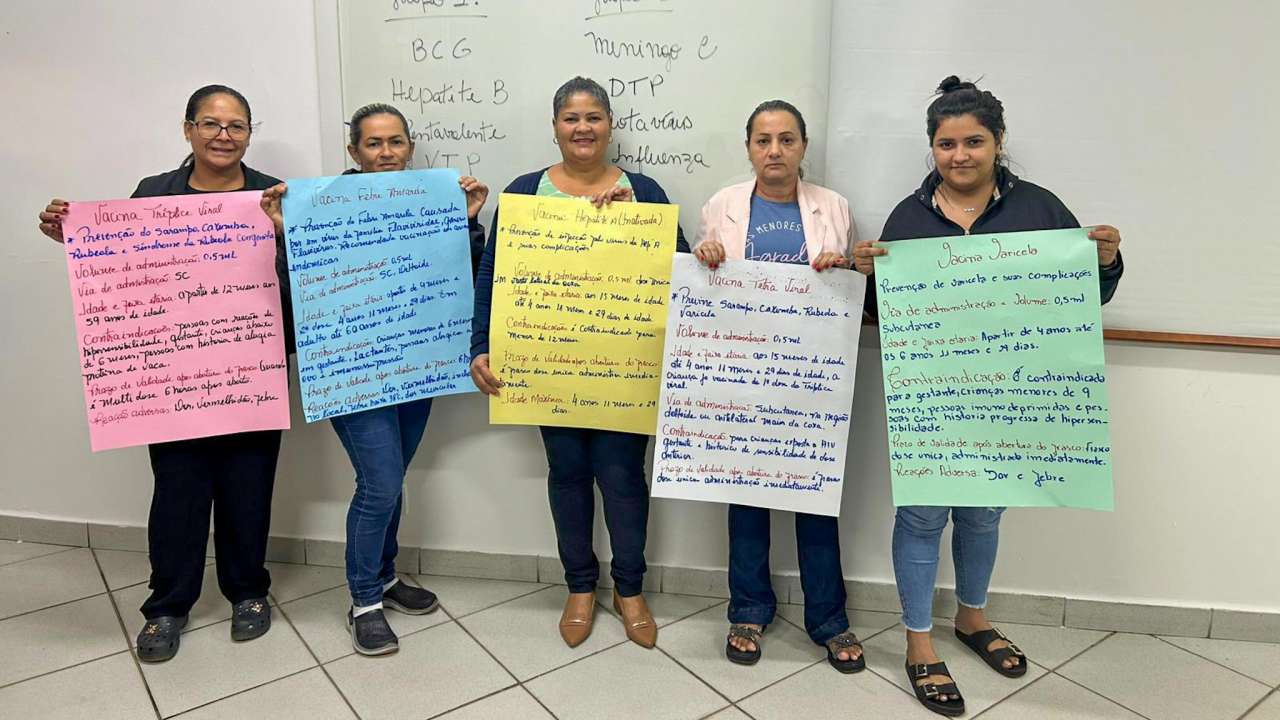 BCG
Hepatite B
Pentavalente
VTP
Meningo C
DTP
Rotavírus
Influenza
Vacina Tríplice Viral
* Prevenção do Sarampo, Caxumba,
Rubeola e Síndrome da Rubeola Congenita
Volume de administração: 0,5 ml
Via de administração: SC
Idade e faixa etaria: a partir de 12 meses aos
59 anos de idade.
Contraindicação: pessoas com reação de
hipersensibilidade, gestante, crianças abaixo
de 6 meses, pessoas com historia de alergia
proteina de vaca.
Prazo de Validade após abertura do frasco:
é multi dose 6 horas após aberto.
Reação adversas: Dor, Vermelhidão, febre
Vacina Febre Amarela
* Prevenção de Febre Amarela Causada
por um vírus da familia Flaviviridae, Gênero
Flavivírus. Recomendada vacinação em area
endemicas
Volume de administração: 0,5 ml
Via de administração: SC, Deltoide
Idade e faixa etaria: a partir de 9 meses
de dose 4 anos 11 meses e 29 dias. Em
adulto até 60 anos de idade
Contraindicação: Crianças menores de 6 meses
em gestante, lactantes, pessoas alergica a
ovo e imunosupressão
Prazo de validade após abertura do frasco: 6 h
Reação Adversa: Dor, Vermelhidão,
no local, febre baixa 38°C, dor muscular
Vacina: Hepatite A (Inativada)
* Prevenção de infecção pelo vírus da Hep A
e suas complicações.
Volume de administração: 0,5 ml dose Unica
IM vasto lateral da coxa
Idade e faixa etaria: aos 15 meses de idade
até 4 anos 11 meses e 29 dias de idade
Contraindicação: é Contraindicado para
menor de 12 meses.
Prazo de Validade após abertura do frasco:
é frasco dose única administrar imediata-
mente.
Idade Máxima: 4 anos 11 meses e 29
dias.
Vacina Tetra Viral
* Previne Sarampo, Caxumba, Rubeola e
Varicela
Volume de administração: 0,5 ml
Idade e faixa etaria: aos 15 meses de idade
até 4 anos 11 meses e 29 dias de idade, a
criança ja vacinada da 1ª dose da Tríplice
viral.
Via de administração: Subcutanea, na região
deltoide ou anterolateral maior da coxa.
Contraindicação: para crianças exposta a HIV
gestante e historico de sensibilidade de dose
anterior.
Prazo de validade após abertura do frasco: é frasco
dose unica administração imediatamente.
MENORES
Vacina Varicela
Prevenção de varicela e suas complicações
Via de administração e Volume: 0,5 ml
Subcutanea
Idade e faixa etaria: Apartir de 4 anos até
os 6 anos 11 meses e 29 dias.
Contraindicação: É contraindicado
para gestante, crianças menores de 9
meses, pessoas imuno deprimidas e pes-
soas com historia progressa de hipersen-
sibilidade.
Prazo de validade após abertura do frasco: frasco
dose unica, administrado imediatamente.
Reações Adversa: Dor e febre